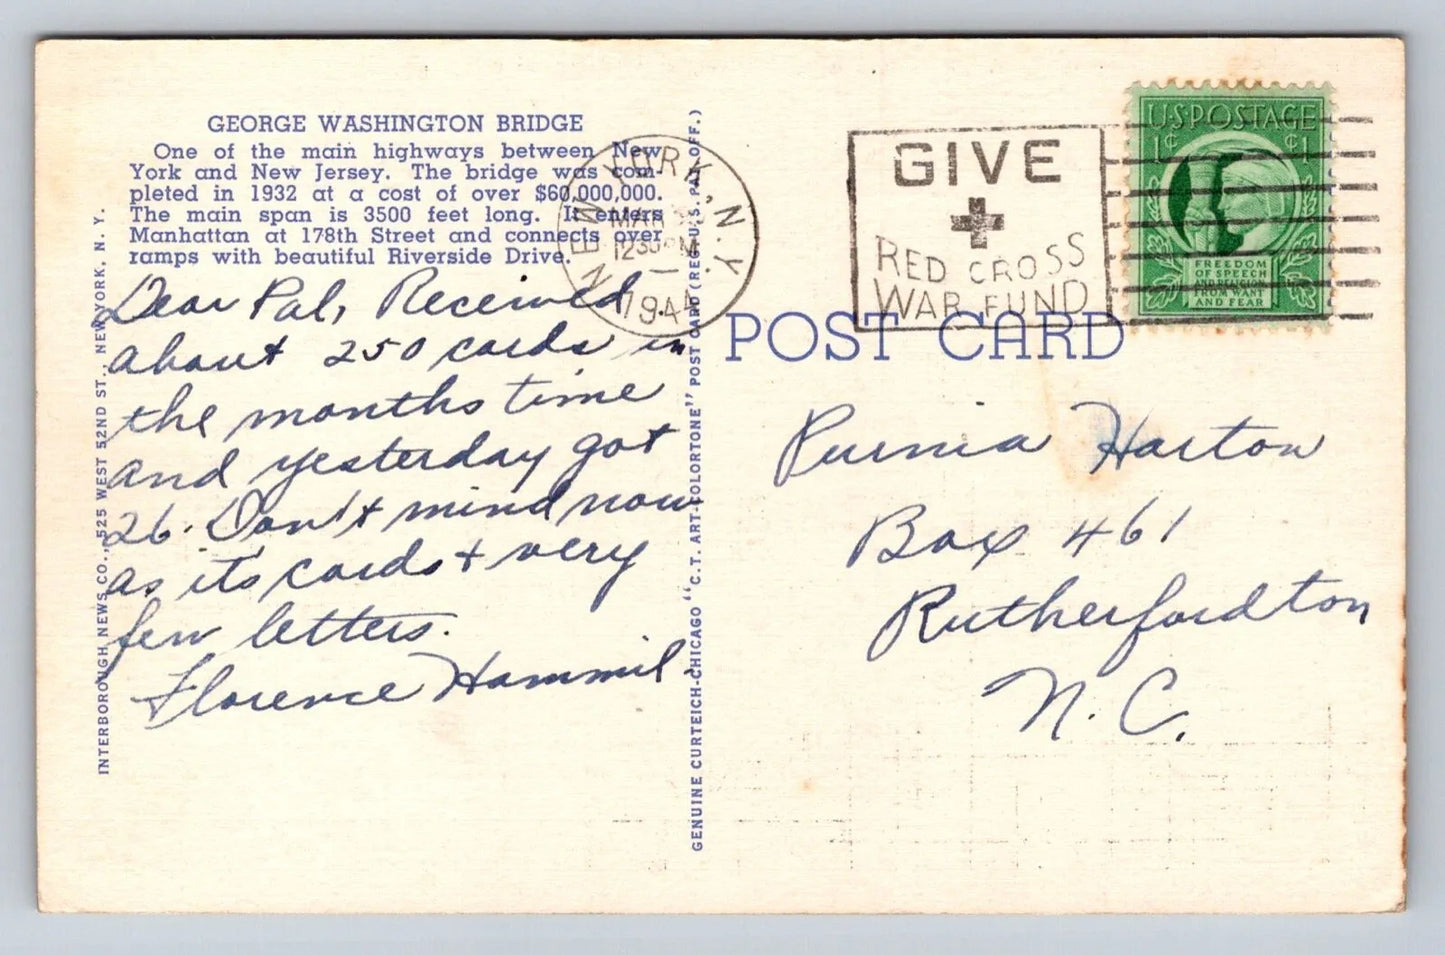 GEORGE WASHINGTON BRIDGE
One of the main highways between New
York and New Jersey. The bridge was com-
pleted in 1932 at a cost of over $60,000,000.
The main span is 3500 feet long. It enters
Manhattan at 178th Street and connects over
ramps with beautiful Riverside Drive.
Dear Pal, Received
about 250 cards in
the months time
and yesterday got
26. Don't mind now
as its cards & very
few letters.
Florence Hammil
INTERBOROUGH NEWS CO., 525 WEST 52ND ST., NEW YORK, N. Y.
GENUINE CURTEICH-CHICAGO "C.T. ART-COLORTONE" POST CARD (REG. U.S. PAT. OFF.)
NEW YORK, N.Y.
MAR
1230 PM
1944
GIVE
RED CROSS
WAR FUND
U.S. POSTAGE
1¢ ¢1
FREEDOM
OF SPEECH
AND RELIGION,
FROM WANT
AND FEAR
POST CARD
Purnia Harton
Box 461
Rutherfordton
N. C.